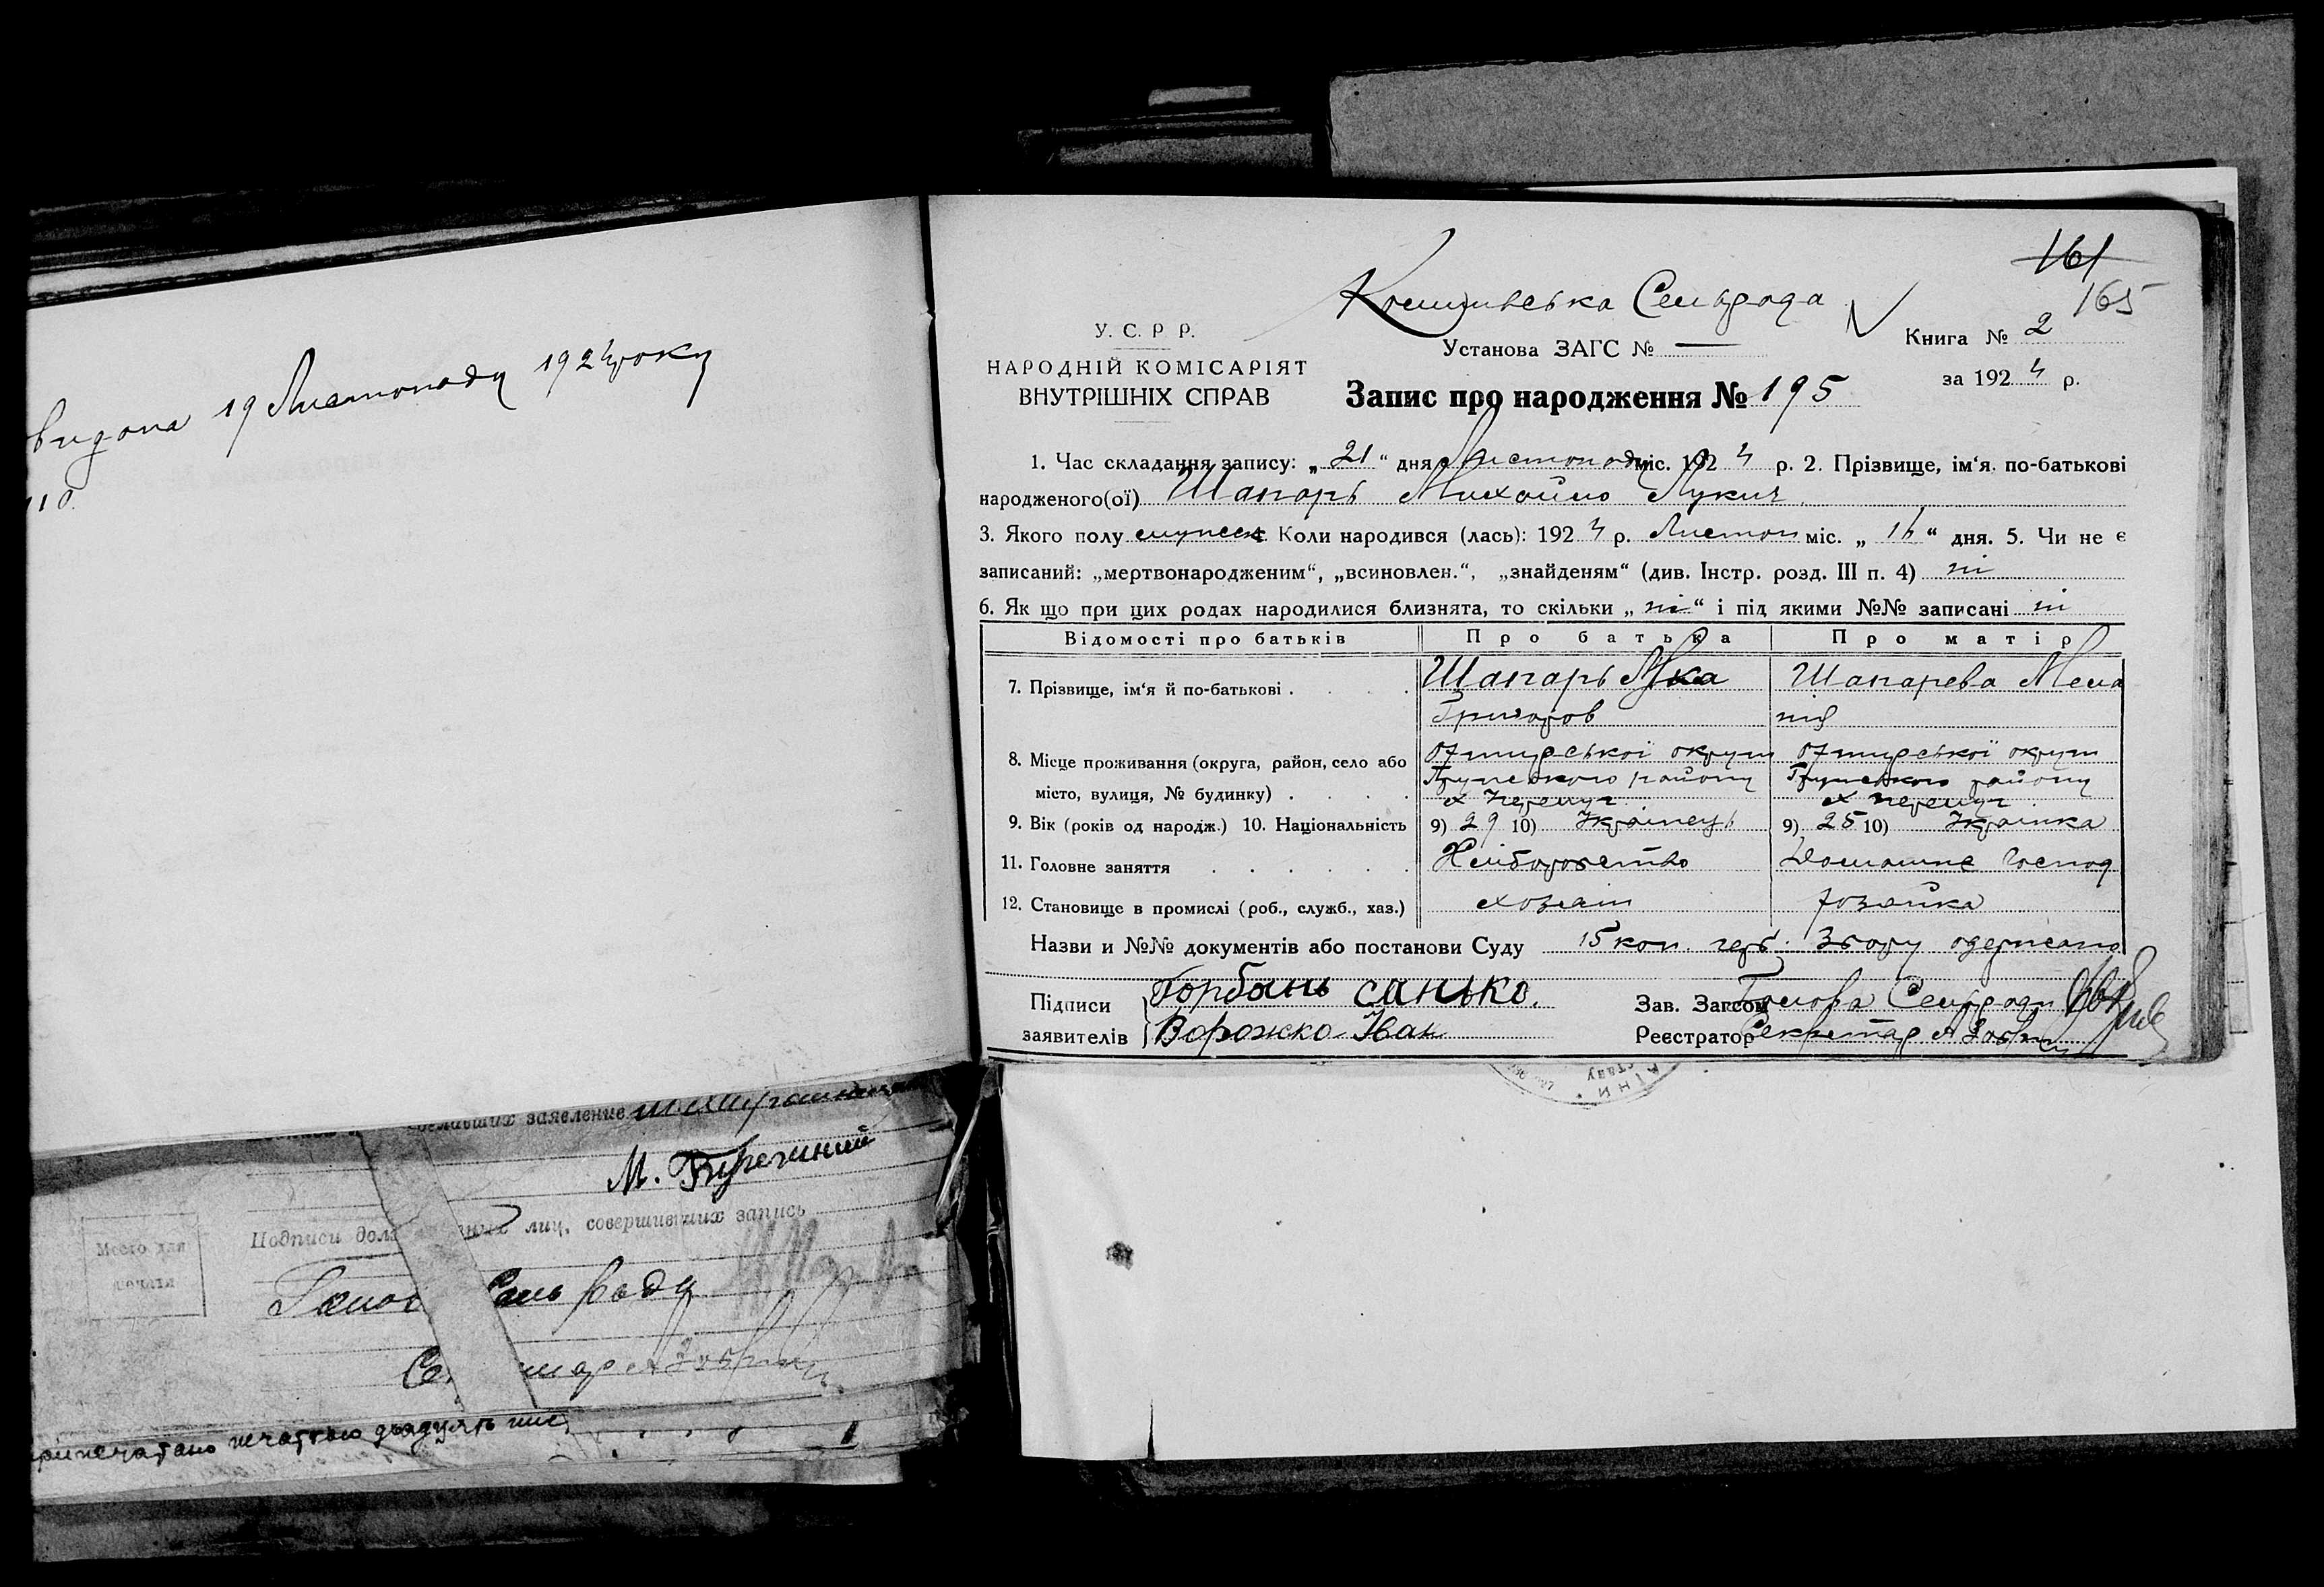 видана 19 Листопаду 1924 року
161
165
Сельрада
У. С. Р Р.
НАРОДНІЙ КОМІСАРІЯТ
ВНУТРІШНІХ СПРАВ
Установа ЗАГС № —
Книга № 2
за 1924 р.
Запис про народження № 195
1. Час складання запису: „21“ дня Листопаду міс. 1924 р. 2. Прізвище, ім‘я. по-батькові
народженого(ої) Шапарь Михайло Лукич
3. Якого полу 4. Коли народився (лась): 1924 р. Листоп міс. „16“ дня. 5. Чи не є
записаний: „мертвонародженим“, „всиновлен.“, „знайденям“ (див. Інстр. розд. III п. 4) ні
6. Як що при цих родах народилися близнята, то скільки „ні“ і під якими №№ записані ні
Відомості про батьків Про батька Про матір
7. Прізвище, ім‘я й по-батькові . . . . Шапарь Лука Шапарева Мела
Григоров нія
8. Місце проживання (округа, район, село або
місто, вулиця, № будинку) . . . .
округи округи
району району
9. Вік (років од народж.) 10. Національність 9) 29 10) Українець 9) 25 10) Українка
11. Головне заняття . . . . . . Хліборобство Домашнє господ
12. Становище в промислі (роб., служб., хаз.) хозяїн хозяйка
Назви и №№ документів або постанови Суду 15 коп. герб. збору одержано
Підписи
заявителів
Горбань санько.
Ворожко Іван
Зав. Загсом Голова Сельради
Реєстратор Секретар
делавших заявление
М.
Место для
печати
Подписи дол ных лиц, совершивших запись
Голов Сель ради
Се тар
припечатано печаттью